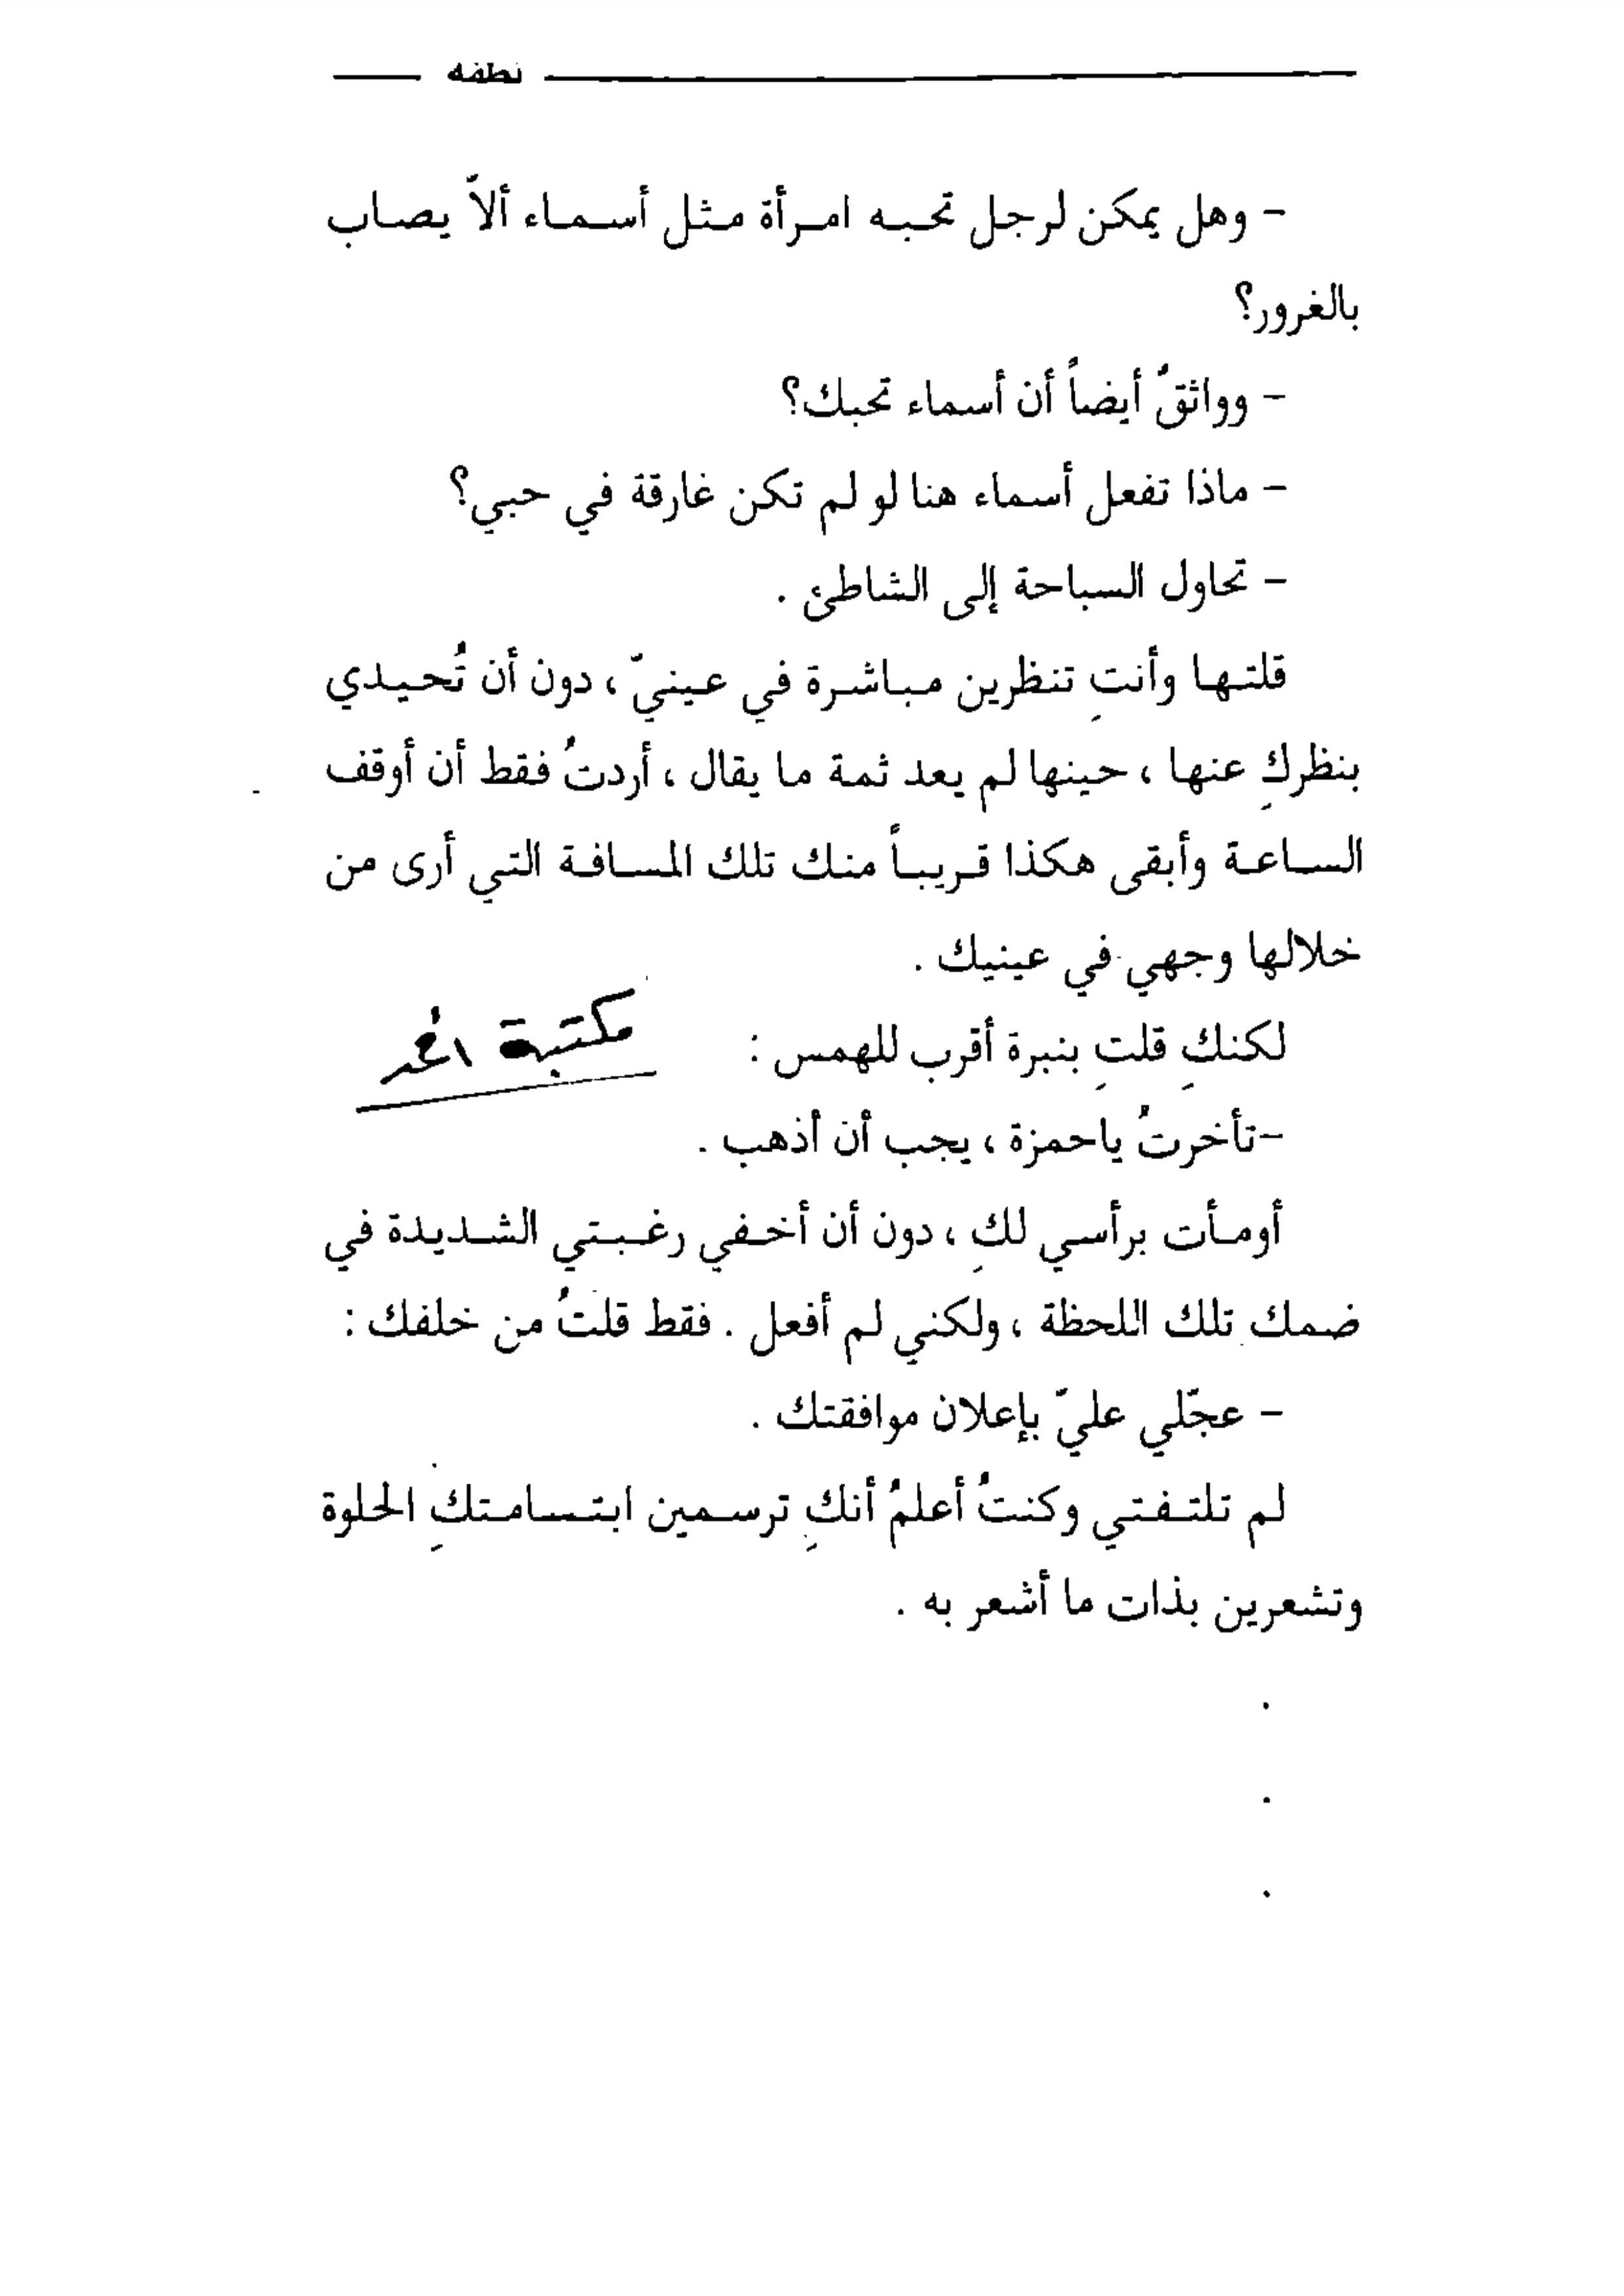 نطفه
- وهل يمكن لرجل تحبه امرأة مثل أسماء ألاّ يصاب
بالغرور؟
- وواثقٌ أيضاً أن أسماء تحبك؟
- ماذا تفعل أسماء هنا لو لم تكن غارقة في حبي؟
- تحاول السباحة إلى الشاطئ .
قلتها وأنتِ تنظرين مباشرة في عينيّ ، دون أن تُحيدي
بنظركِ عنها ، حينها لم يعد ثمة ما يقال ، أردتُ فقط أن أوقف
الساعة وأبقى هكذا قريباً منك تلك المسافة التي أرى من
خلالها وجهي في عينيك .
لكنكِ قلتِ بنبرة أقرب للهمس :
مكتبة
-تأخرتُ ياحمزة ، يجب أن أذهب .
أومأت برأسي لكِ ، دون أن أخفي رغبتي الشديدة في
ضمك تلك اللحظة ، ولكني لم أفعل . فقط قلتُ من خلفك :
- عجّلي عليّ بإعلان موافقتك .
لم تلتفتي وكنتُ أعلمُ أنكِ ترسمين ابتسامتكِ الحلوة
وتشعرين بذات ما أشعر به .
.
.
.